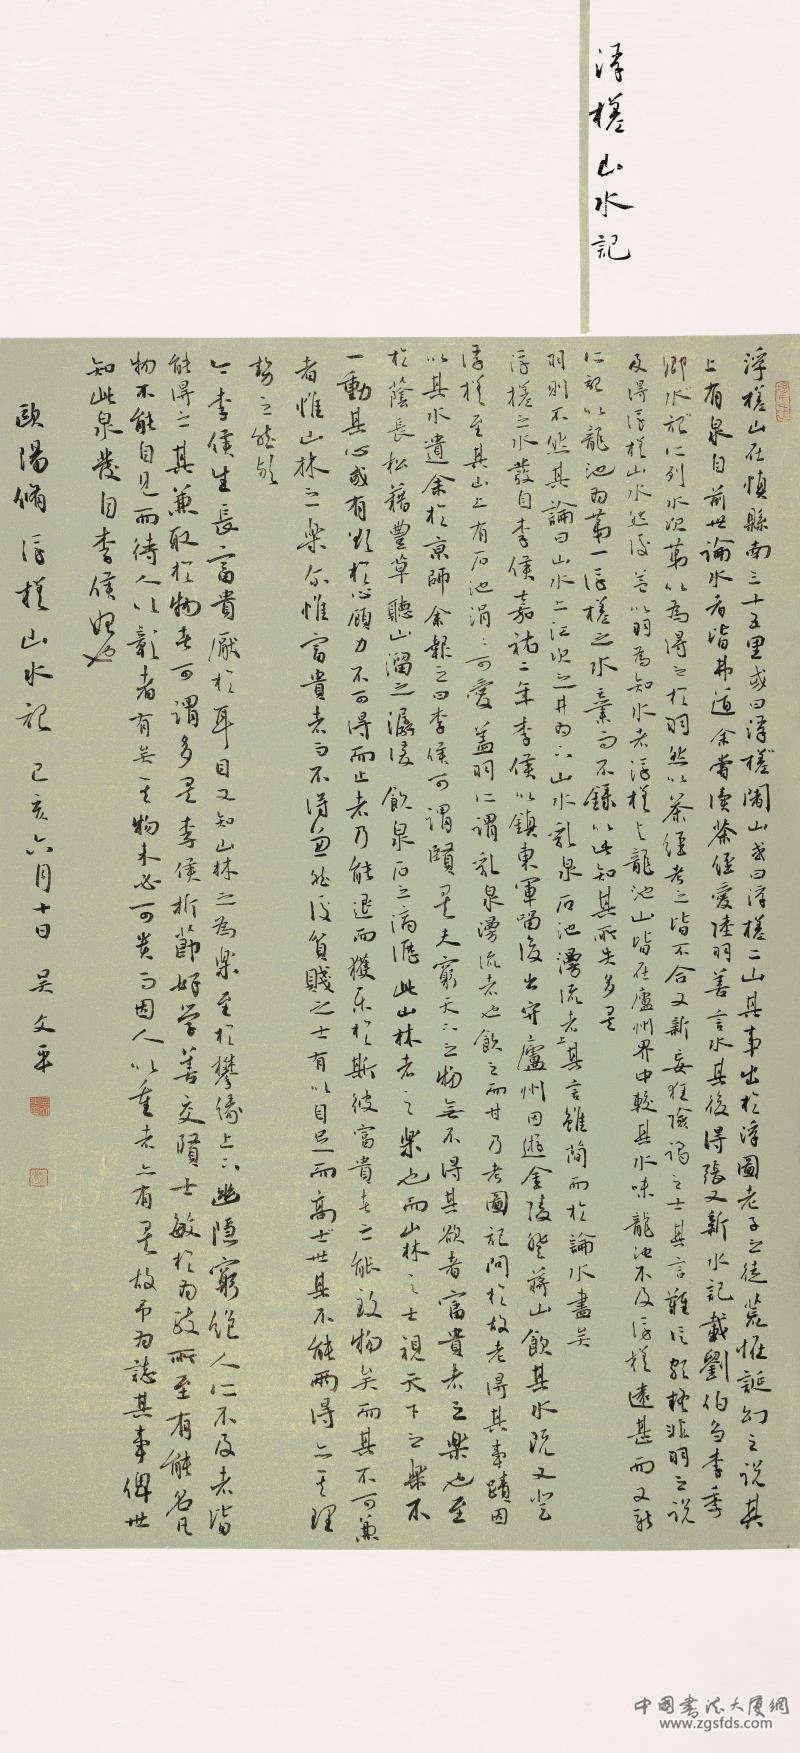 浮槎山水記
浮槎山在慎縣南三十五里或曰浮槎闍山或曰浮槎二山其事出於浮圖老子之徒荒怪誕幻之說其
上有泉自前世論水者皆弗道余嘗讀茶經愛陸羽善言水其後得張又新水記載劉伯芻李季
卿水記所列水次第以為得之於羽然以茶經考之皆不合又新妄狂險譎之士其言難信頗疑非羽之說
及得浮槎山水然後益以羽為知水者浮槎與龍池山皆在廬州界中較其水味龍池不及浮槎遠甚而又新
所記以龍池為第一浮槎之水棄而不錄以此知其所失多矣
羽則不然其論曰山水上江次之井為下山水乳泉石池漫流者上其言雖簡而於論水盡矣
浮槎之水發自李侯嘉祐二年李侯以鎮東軍留後出守廬州因遊金陵登蔣山飲其水既又登
浮槎至其山上有石池涓涓可愛蓋羽所謂乳泉漫流者也飲之而甘乃考圖記問於故老得其事蹟因
以其水遺余於京師余報之曰李侯可謂賢矣夫窮天下之物無不得其欲者富貴者之樂也至
於蔭長松藉豐草聽山溜之潺湲飲泉石之滴瀝此山林者之樂也而山林之士視天下之樂不
一動其心或有欲於心顧力不可得而止者乃能退而獲樂於斯彼富貴者之能致物矣而其不可兼
者惟山林之樂爾惟富貴者而不得兼然後貧賤之士有以自足而高世其不能兩得亦其理
與勢之然歟
今李侯生長富貴厭於耳目又知山林之為樂至於攀緣上下幽隱窮絕人所不及者皆
能得之其兼取於物者可謂多矣李侯折節好學善交賢士敏於為政所至有能名凡
物不能自見而待人以彰者有矣其物未必可貴而因人以重者亦有矣故予為誌其事俾世
知此泉發自李侯始也
歐陽脩浮槎山水記 己亥六月十日 吴文平
中国书法大厦網
www.zgsfds.com